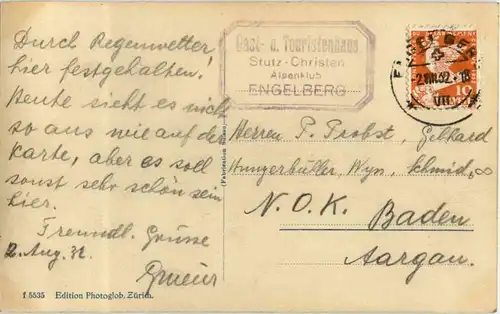 Durch Regenwetter
hier festgehalten!
Heute sieht es nicht
so aus wie auf der
Karte, aber es soll
sonst sehr schön sein
hier.
Freundl. Grüsse
2. Aug. 32.
Gast- u. Touristenhaus
Stutz-Christen
Alpenklub
ENGELBERG
ENGELBERG
2.VIII.32.-18
VII
10
Herren P. Probst, Gebhard
Hungerbühler, Wyn, Schmid,
N.O.K. Baden
Aargau.
f 5535 Edition Photoglob, Zürich.